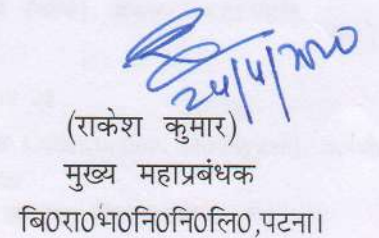 24/4/2020
(राकेश कुमार)
मुख्य महाप्रबंधक
बि0रा0भ0नि0नि0लि0,पटना।